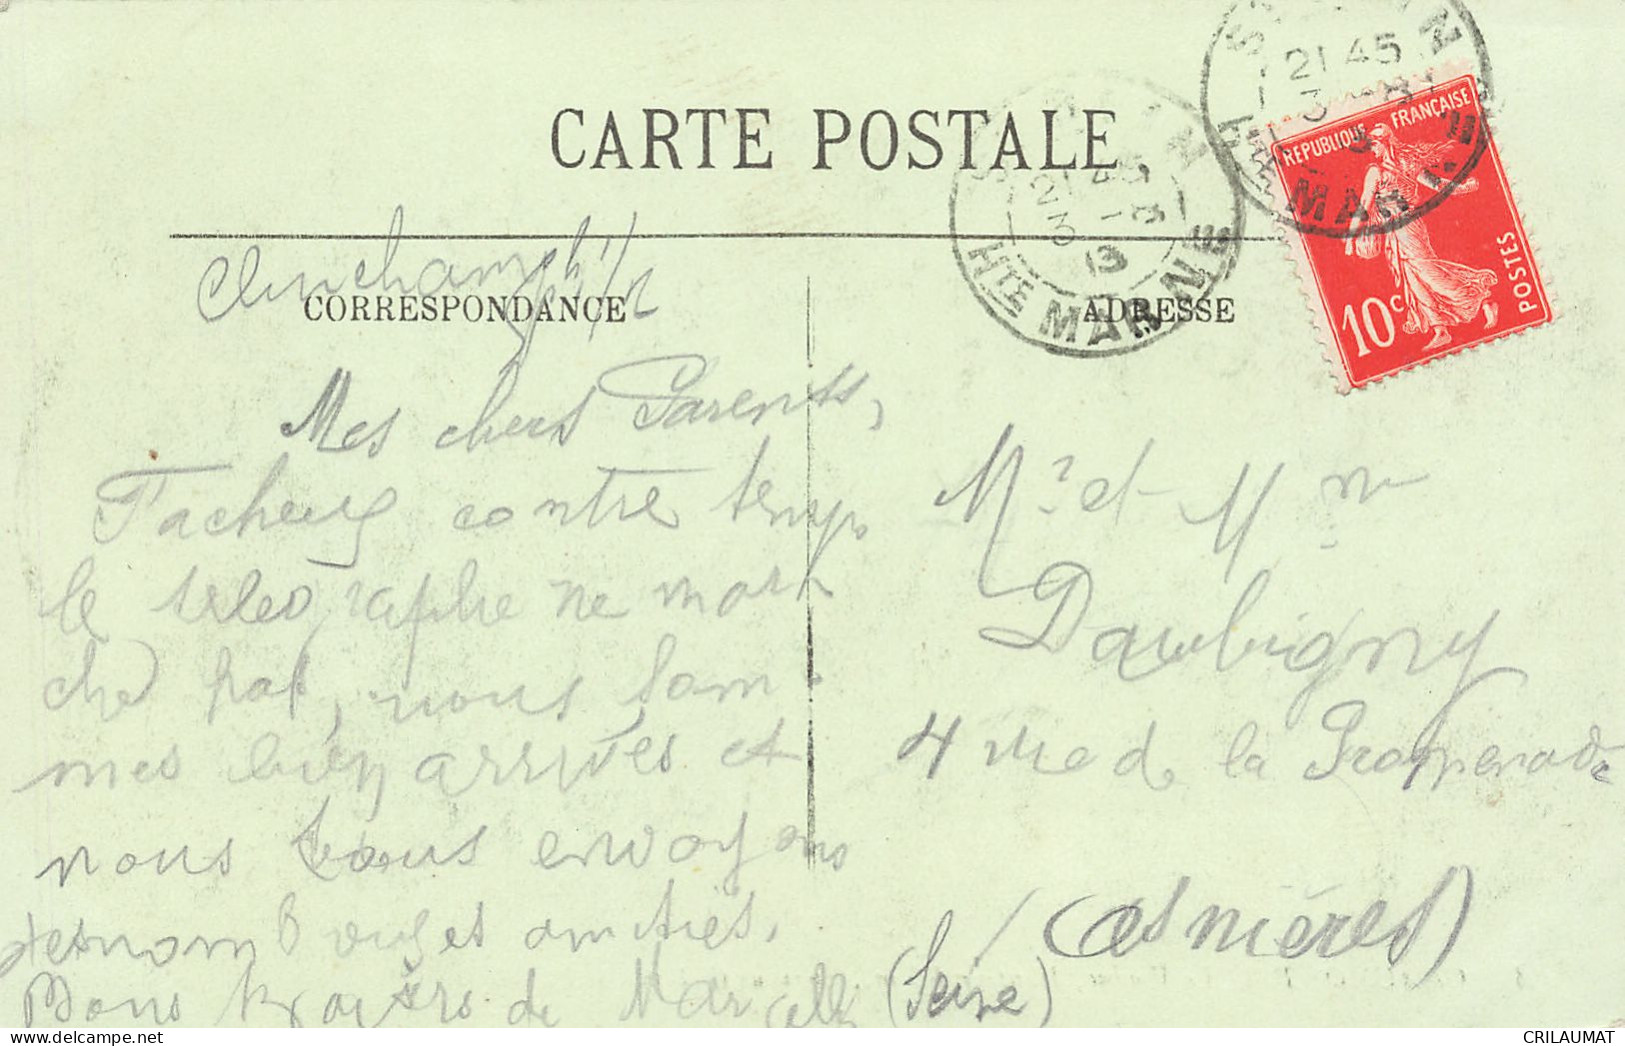 CARTE POSTALE
CORRESPONDANCE
ADRESSE
21 45
3 - 8
13
HTE MARNE
21 45
3 - 8
13
HTE MARNE
REPUBLIQUE FRANÇAISE
POSTES
10c
Mes chers Parents,
Facheux contre temps
le telegraphe ne mar
che pas, nous som
mes bien arrivés et
nous vous envoyons
nos nombreuses amitiés.
Bons baisers de Marcelle
Mr et Mme
Daubigny
4 rue de la Promenade
(Asnières)
(Seine)
CRILAUMAT